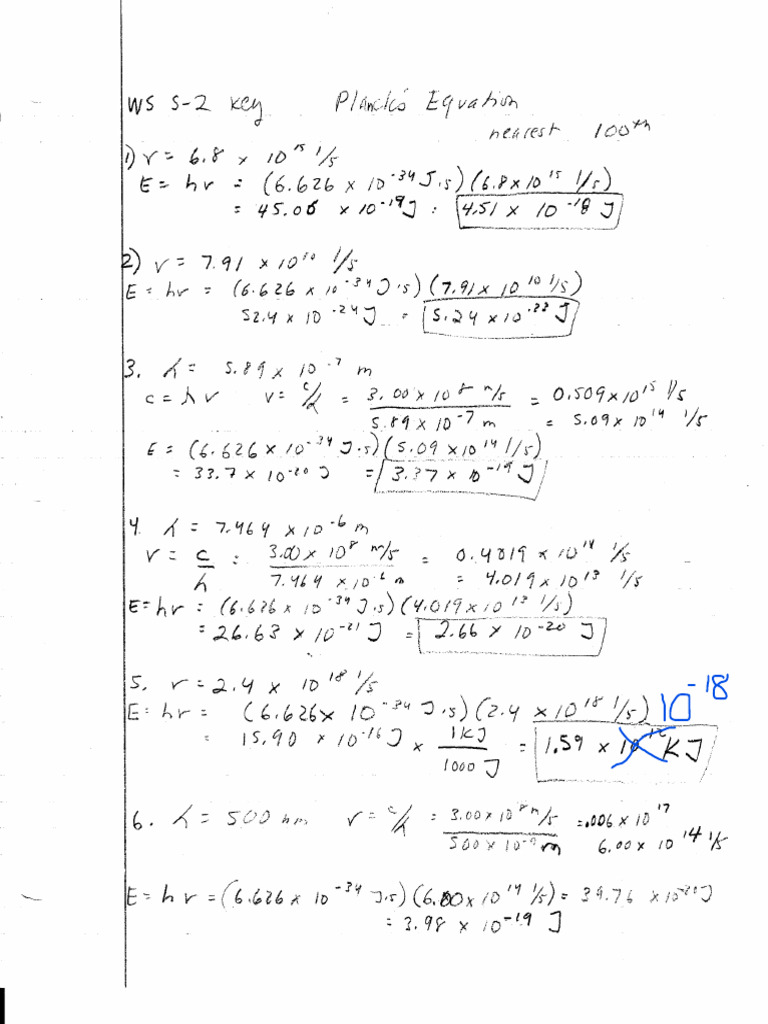 WS 5-2 Key Planck's Equation
nearest 100th
1) ν = 6.8 × 10^15 1/s
E = hν = (6.626 × 10^-34 J·s)(6.8 × 10^15 1/s)
= 45.06 × 10^-19 J = 4.51 × 10^-18 J
2) ν = 7.91 × 10^10 1/s
E = hν = (6.626 × 10^-34 J·s)(7.91 × 10^10 1/s)
52.4 × 10^-24 J = 5.24 × 10^-23 J
3. λ = 5.89 × 10^-7 m
c = λν ν = c/λ = 3.00 × 10^8 m/s / 5.89 × 10^-7 m = 0.509 × 10^15 1/s
= 5.09 × 10^14 1/s
E = (6.626 × 10^-34 J·s)(5.09 × 10^14 1/s)
= 33.7 × 10^-20 J = 3.37 × 10^-19 J
4. λ = 7.464 × 10^-6 m
ν = c/λ = 3.00 × 10^8 m/s / 7.464 × 10^-6 m = 0.4019 × 10^14 1/s
= 4.019 × 10^13 1/s
E = hν = (6.626 × 10^-34 J·s)(4.019 × 10^13 1/s)
= 26.63 × 10^-21 J = 2.66 × 10^-20 J
5. ν = 2.4 × 10^18 1/s
E = hν = (6.626 × 10^-34 J·s)(2.4 × 10^18 1/s) 10^-18
= 15.90 × 10^-16 J × 1 KJ / 1000 J = 1.59 × KJ
6. λ = 500 nm ν = c/λ = 3.00 × 10^8 m/s / 500 × 10^-9 m = .006 × 10^17
6.00 × 10^14 1/s
E = hν = (6.626 × 10^-34 J·s)(6.00 × 10^14 1/s) = 39.76 × 10^-20 J
= 3.98 × 10^-19 J